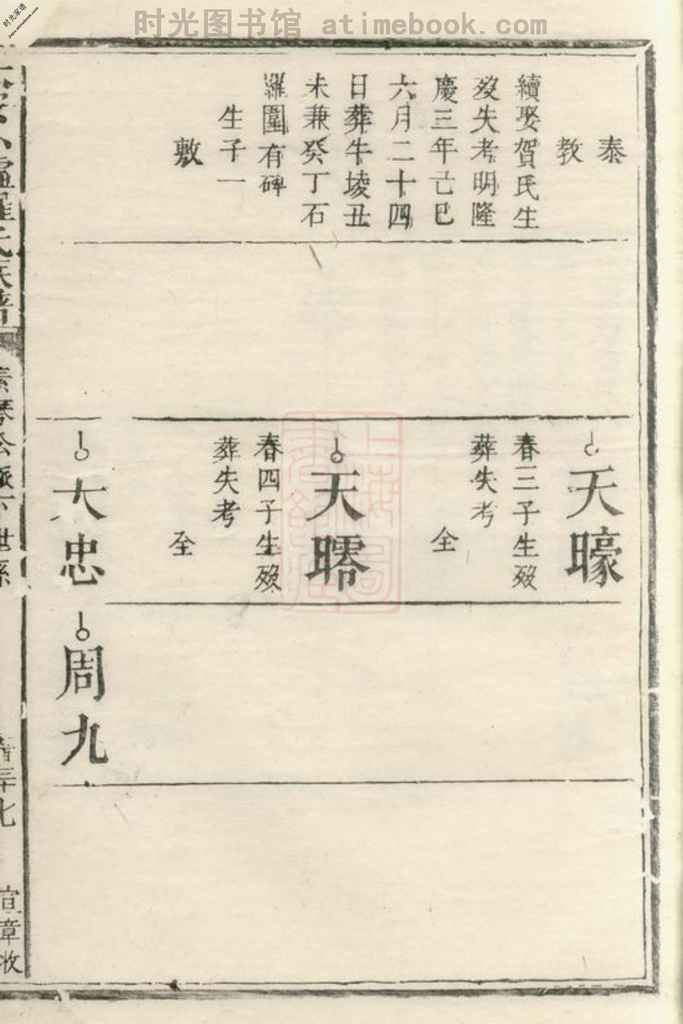 时光图书馆 atimebook.com
泰
教
續娶賀氏生
歿失考明隆
慶三年己巳
六月二十四
日葬牛堎丑
未兼癸丁石
羅圍有碑
生子一
敷
天㠙
春三子生歿
葬失考
仝
天
春四子生歿
葬失考
仝
大忠
周九
羅氏族譜
素琴公派下世系
三七
宣章收